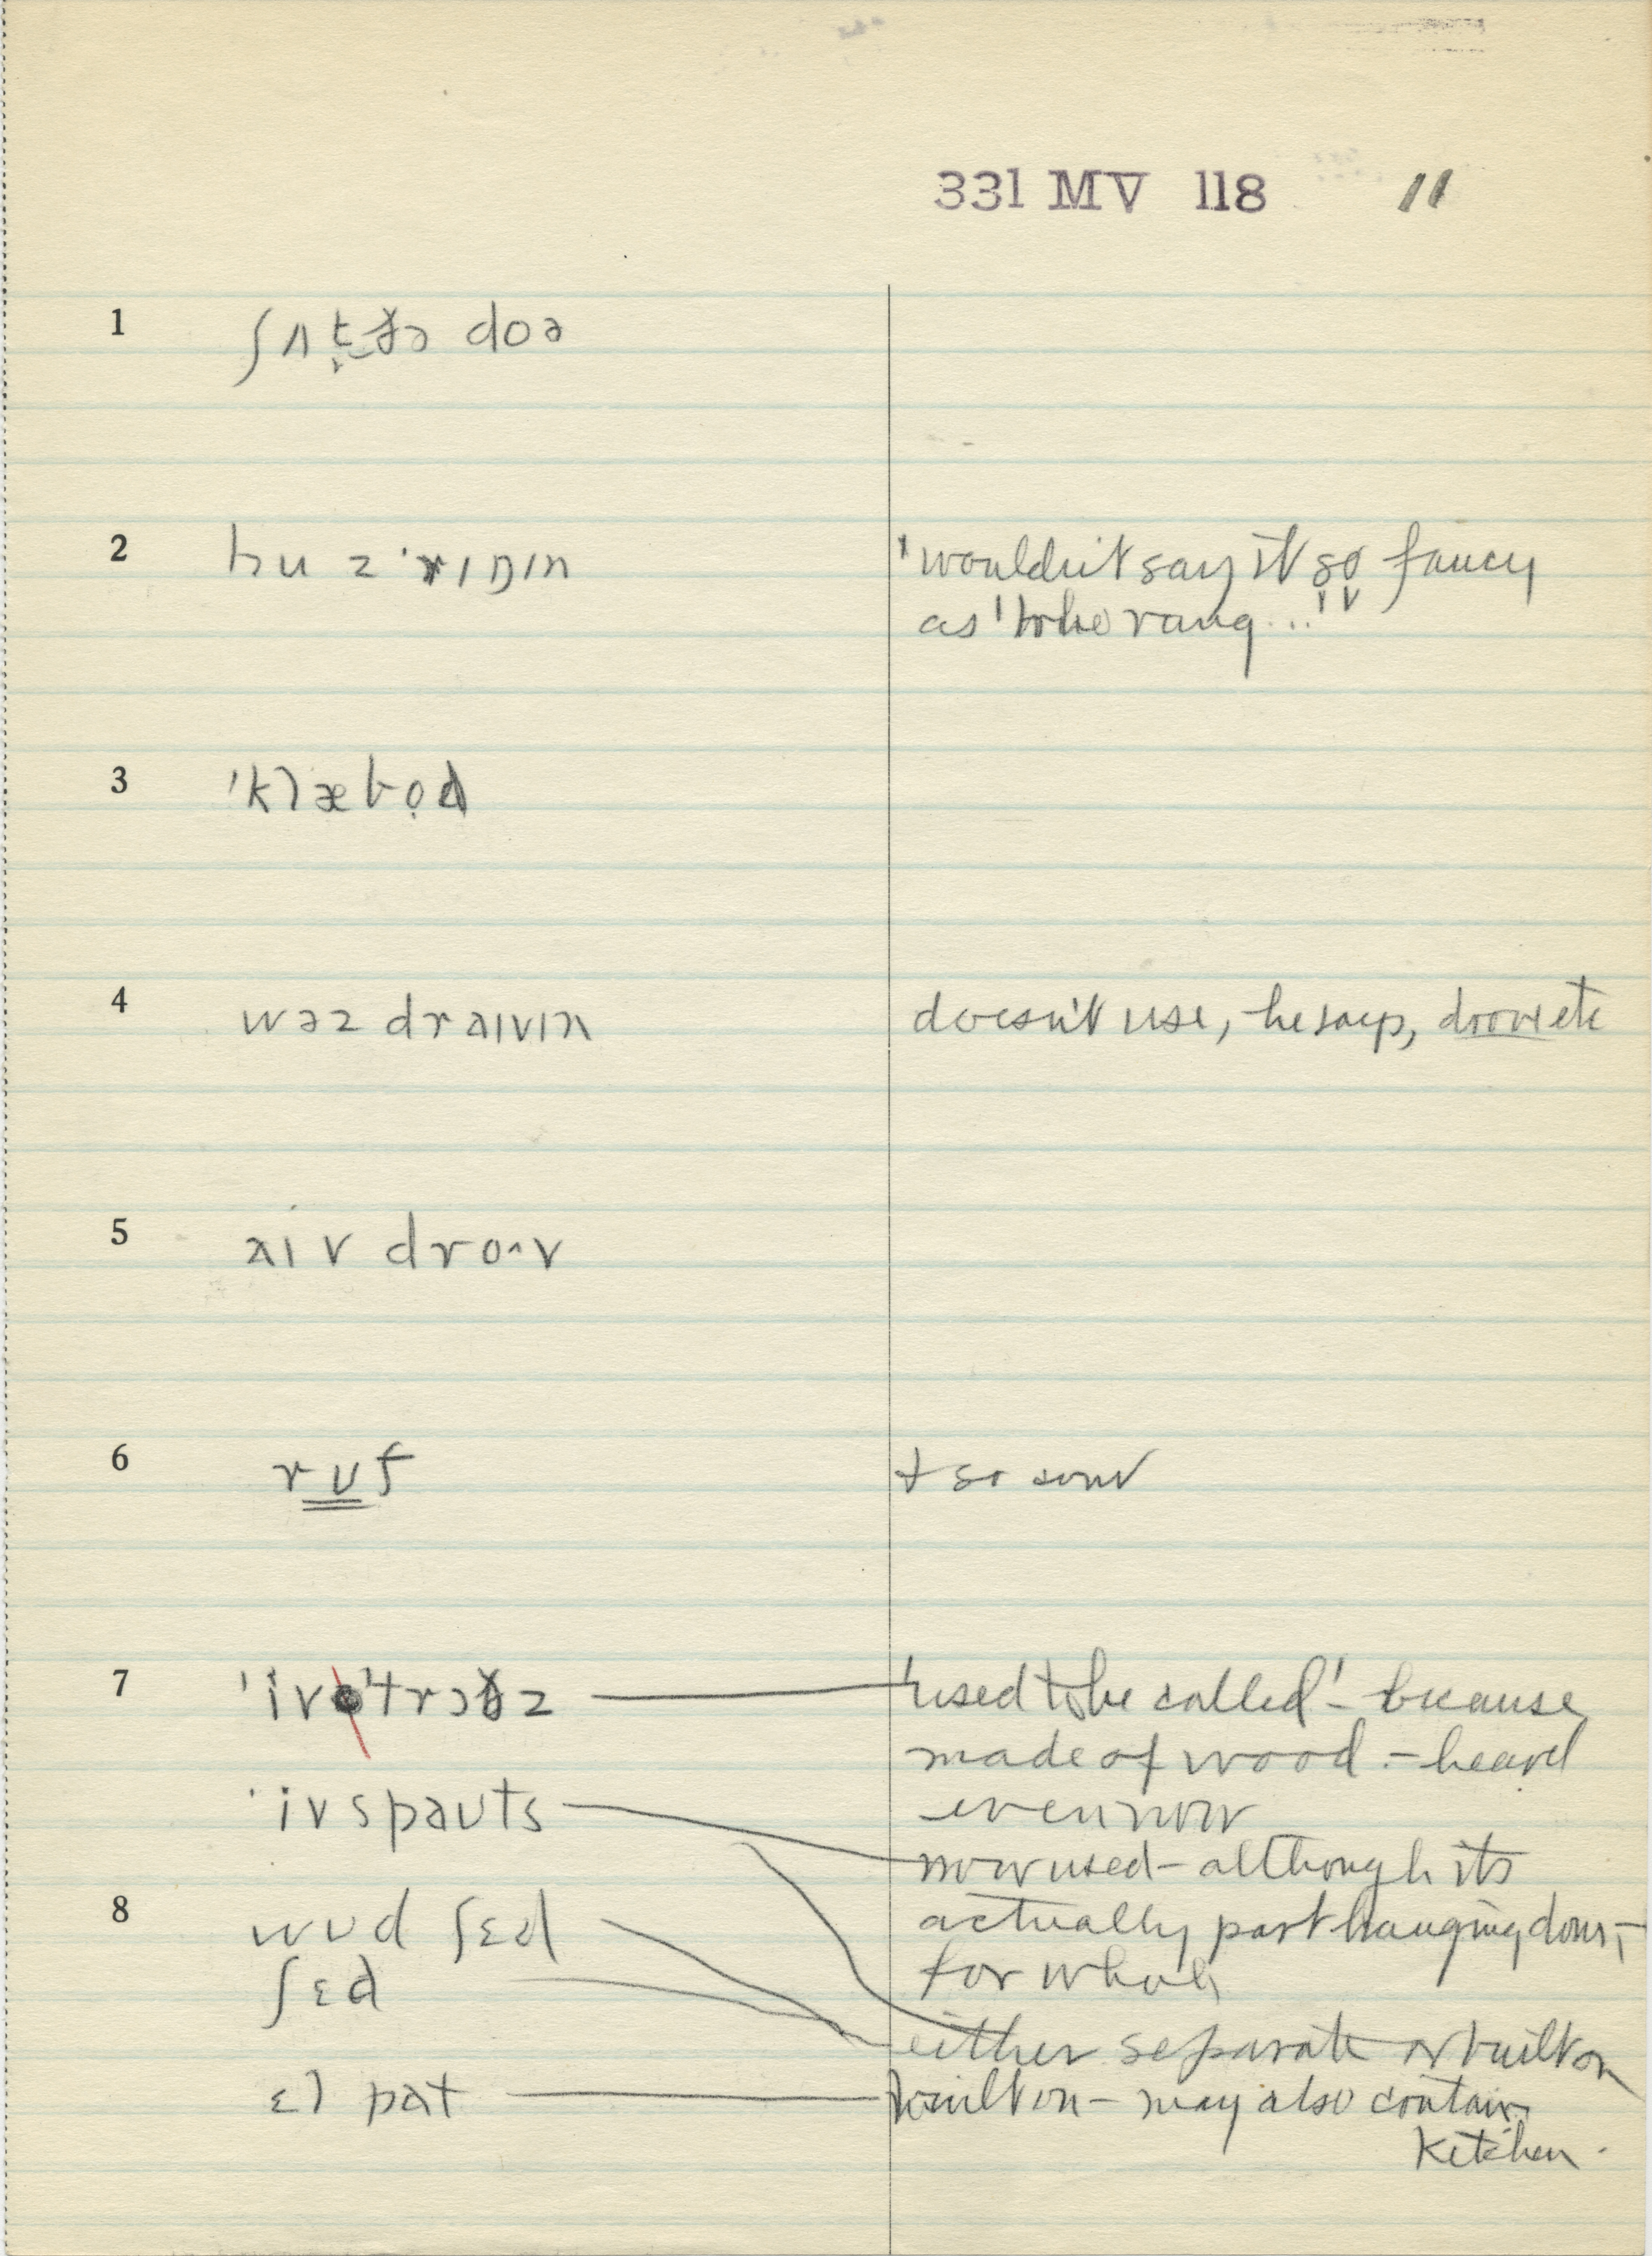 331 MV 118 11
1 ʃʌt ðə doə
2 hu z ˈrɪŋɪn 'wouldn't say it so fancy
as 'who rang...'
3 ˈklæbo̩d
4 wəz draɪvɪn doesn't use, he says, drove etc
5 aiv dro^v
6 rʊf + so son
7 ˈivˈtrɔɣz 'used to be called' - because
made of wood - heard
even now
ˈivspaʊts now used - although its
actually part hanging down -
for whole
8 wʊd ʃɛd
ʃɛd
either separate or built on
ɛl pat built on - may also contain
kitchen.